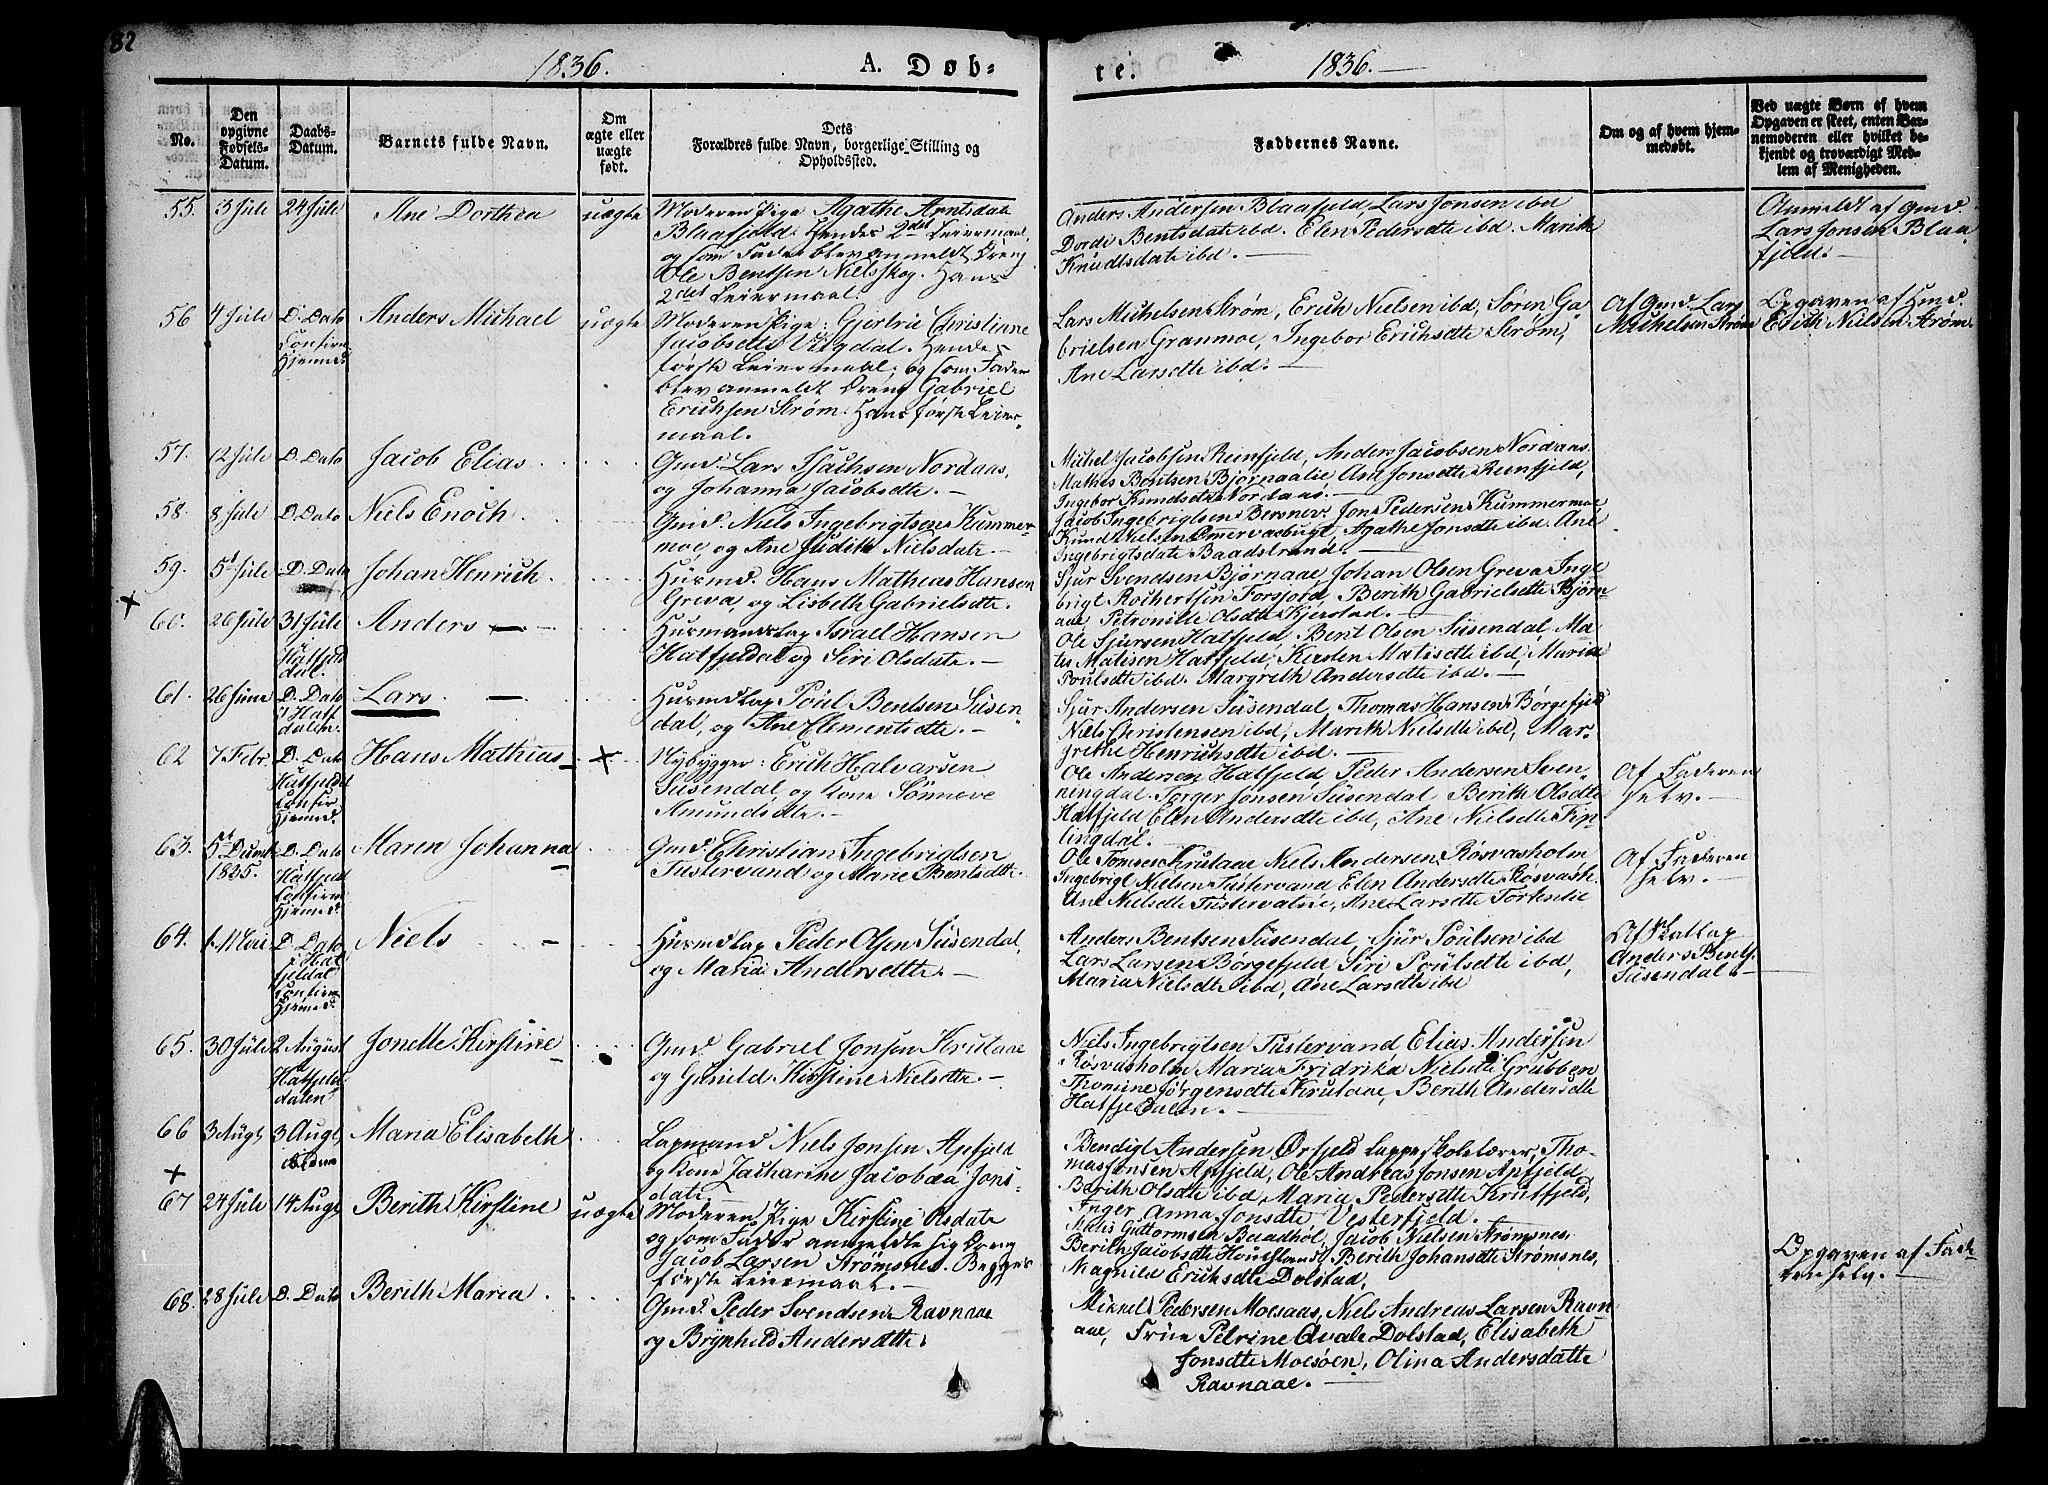 82
1836.
A. Døb-
te.
1836.
No.
Den
opgivne
Fødsels-
Datum.
Daabs-
Datum.
Barnets fulde Navn.
Om
ægte eller
uægte
født.
Dets
Forældres fulde Navn, borgerlige Stilling og
Opholdssted.
Faddernes Navne.
Om og af hvem hjem-
medøbt.
Ved uægte Børn af hvem
Opgaven er skeet, enten Bar-
nemoderen eller hvilket be-
kjendt og troværdigt Med-
lem af Menigheden.
55. 3 Juli 24 Juli Ane Dorthea uægte
Moderen Pige Agathe Arntsdatr
Blaafjeld. Hendes 2det Leiermaal,
og som Fader blev anmeldt Dreng
Ole Bentsen Nielsskog. Hans
2det Leiermaal.
Anders Andersen Blaafjeld, Lars Jonsen ibd
Dordi Bentsdatr ibd. Elen Pedersdtr ibd Marith
Knudtsdatr ibd. —
Anmeldt af Gmd.
Lars Jonsen Blaa
fjeld.
56 4 Juli D. Dato
Confirm
Hjemmed.
Anders Michael uægte
Moderen Pige: Gjertru Christinne
Jacobsdtr Visdal. Hendes
første Leiermaal, og som Fader
blev anmeldt Dreng Gabriel
Erichsen Strøm. Hans første Leier
maal.
Lars Michelsen Strøm, Erich Nielsen ibd, Søren Ga
brielsen Granmoe, Ingebor Erichsdtr Strøm,
Ane Larsdtr ibd. —
Af Gmd. Lars
Michelsen Strøm
Opgaven af Gmd.
Erich Nielsen Strøm.
57. 12 Juli D. Dato Jacob Elias
Gmd. Lars Isachsen Nordaas,
og Johanna Jacobsdtr. —
Michel Jacobsen Reinfjeld, Anders Jacobsen Nordaas
Mathis Bentsen Bjørnaalie, Ane Jonsdtr Reinfjeld,
Ingebor Knudsdtr Nordaas. —
58. 8 Juli D. Dato Niels Enoch
Gmd. Niels Ingebrigtsen Kummer-
moe, og Ane Judith Nielsdatr. —
Jacob Ingebrigtsen Bersnev, Jon Pedersen Kummermoe
Knud Nielsen Ømmervasbugt, Agathe Jonsdtr ibd. Ane
Ingebrigtsdatr Baadstrand. —
59. 5t Juli D. Dato Johan Henrich
Husmd. Hans Mathias Hansen
Greva, og Lisbeth Gabrielsdtr.
Sjur Svendsen Bjørnaae, Johan Olsen Greva Inge
brigt Forsjord, Berith Gabrielsdtr Bjørn-
aae, Petronille Olsdtr Kjerstad. —
60. 26 Juli 31 Juli
i
Hatfjeld
dal.
Anders —
Husmandslap Israel Hansen
Hatfjeldal og Siri Olsdatr. —
Ole Sjursen Hatfjeld, Bent Olsen Süsendal, Ma-
tis Matisen Hatfjeld, Kirsten Matisdtr ibd, Maria
Poulsdtr ibd. Margreth Andersdtr ibd. —
61. 26 June D. Dato
i Hatf
dalen.
Lars —
Husmdlap Poül Bentsen Süsen
dal, og Ane Clementsdtr. —
Sjur Andersen Süsendal, Thomas Hansen Børgefjeld
Niels Christensen ibd, Marith Nielsdtr ibd, Mar-
grethe Henrichsdtr ibd. —
62 7 Febr. D. Dato
Hatfjeldd
confir
Hjemed.
Hans Mathias
Nybygger: Erich Halvarsen
Süsendal, og Kone Sønneve
Amundsdtr. —
Ole Andersen Hatfjeld, Peder Andersen Sven-
ningdal. Torger Jonsen Süsendal Berith Olsdtr
Hatfjeld Elen Andersdtr ibd, Ane Nielsdtr Fip-
lingdal.
Af Faderen
selv. —
63. 5t
1835.
D. Dato
Hatfjeld
Confirm
Hjemed.
Maren Johanna
Gmd. Christian Ingebrigtsen
Tüstervand og Marie Bentsdtr.
Ole Tomsen Krutaae Niels Andersen Røsvasholm
Ingebrigt Nielsen Tüstervand Elen Andersdtr Røsvash.
Ane Nielsdtr Tüstervatne, Ane Larsdtr
Af Faderen
selv. —
64. 1 Mai D. Dato
i Hat
fjeldal
confirm
Hjemed.
Niels —
Husmdlap Peder Olsen Süsendal,
og Maria Andersdtr. —
Anders Bentsen Süsendal, Sjür Poülsen ibd
Lars Larsen Børgefjeld Siri Poülsdtr ibd,
Maria Nielsdtr ibd, Ane Larsdtr ibd
Af Skatlap
Anders Bents.
Süsendal. —
65. 30 Juli 2 August
i
Hatfjeld
dalen
Jonette Kirstine
Gmd. Gabriel Jonsen Krutaae
og Gunild Kirstine Nielsdtr. —
Niels Ingebrigtsen Tüstervand Elias Andersen
Røsvasholm Maria Fridrika Nielsdtr Grubben
Thomine Jørgensdtr Krutaae, Berith Andersdtr
Hatfjeldalen. —
66 3 Augt, 3 Augt,
Maria Elisabeth
Lapmand Niels Jonsen Apfjeld
og Kone Zacharine Jacobæa Jons-
datr.
Bendigt Andersen Ørfjeld Lappeskolelærer, Tho-
mas Jonsen Apfjeld, Ole Andreas Jonsen Apfjeld
Berith Olsdtr ibd, Maria Pedersdtr Krutfjeld,
Inger Anna Jonsdtr, Vesterfjeld.
67 24 Juli 14 Augt Berith Kirstine uægte
Moderen Pige Kirstine Olsdatr
og som Fader anmeldte sig Dreng
Jacob Larsen Strømsnes. Begges
første Leiermaal. —
Guttormsen Baadhol, Jacob Nielsen Strømsnes,
Berith Jacobsdtr Berith Johansdtr Strømsnes,
Magnild Erichsdtr Dolstad,
Opgaven af Fade
ren selv. —
68. 28 Juli D. Dato Berith Maria
Gmd. Peder Svendsen Ravnaae
og Brynhild Andersdtr.
Mikkel Pedersen Moesaas, Niels Andreas Larsen Ravn
aae, Frue Petrine Qvale Dolstad, Elisabeth
Jonsdtr Moesøen, Olina Andersdatr
Ravnaae. —